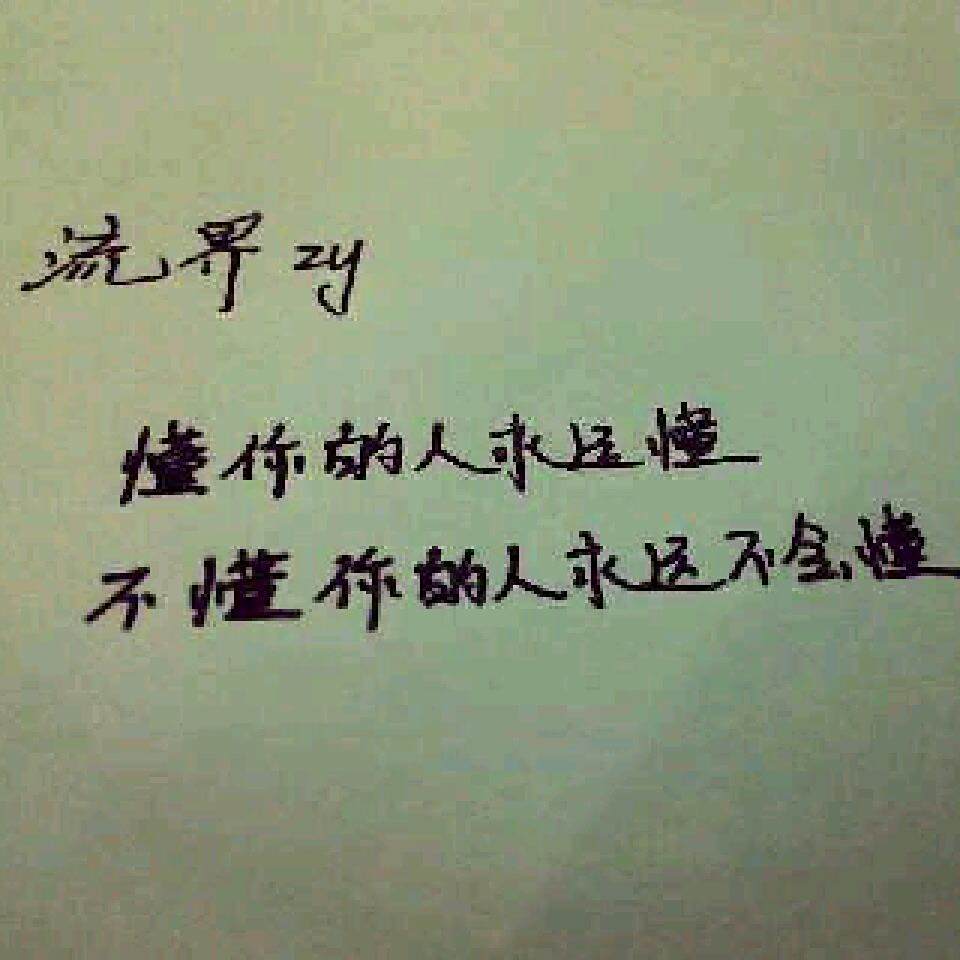 流界zy
懂你的人永远懂
不懂你的人永远不会懂